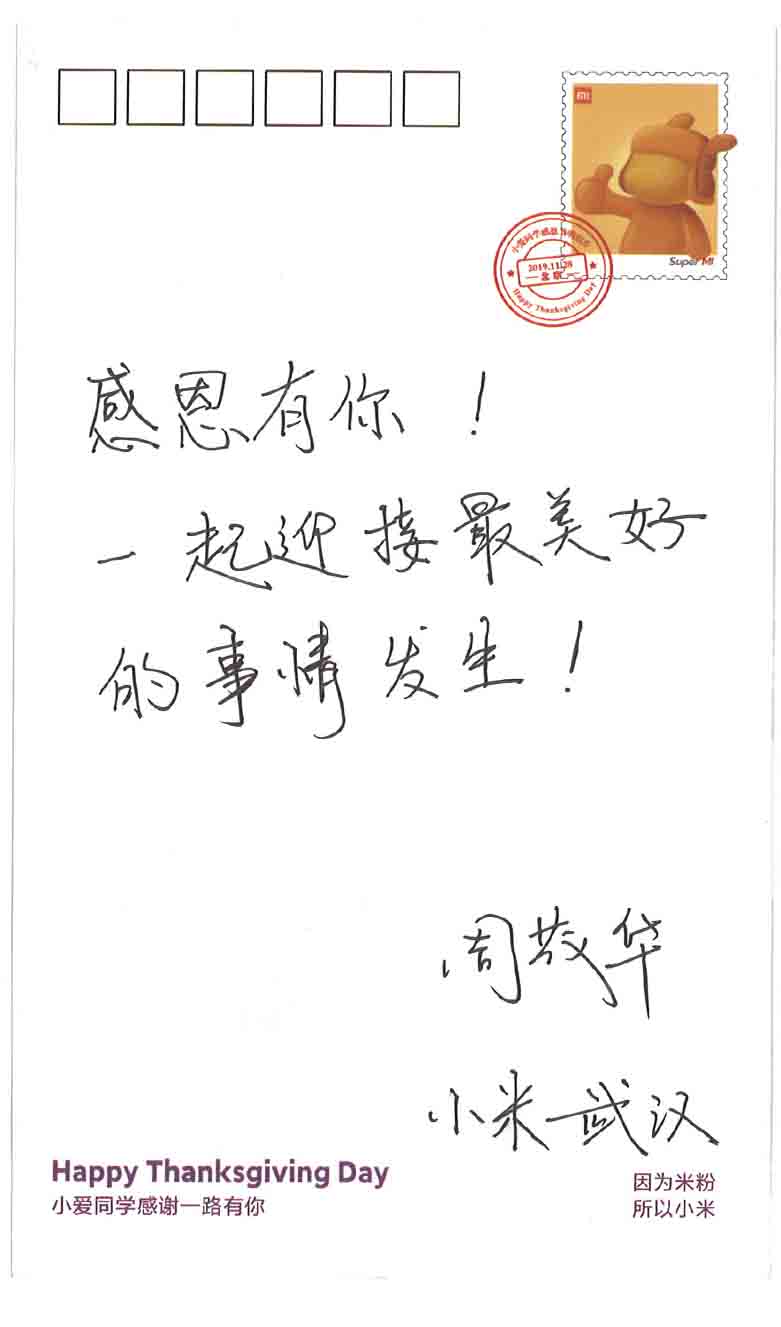 MI
Super MI
2019.11.28
北京
Happy Thanksgiving Day
感恩有你！
一起迎接最美好
的事情发生！
周茂华
小米武汉
Happy Thanksgiving Day
小爱同学感谢一路有你
因为米粉
所以小米